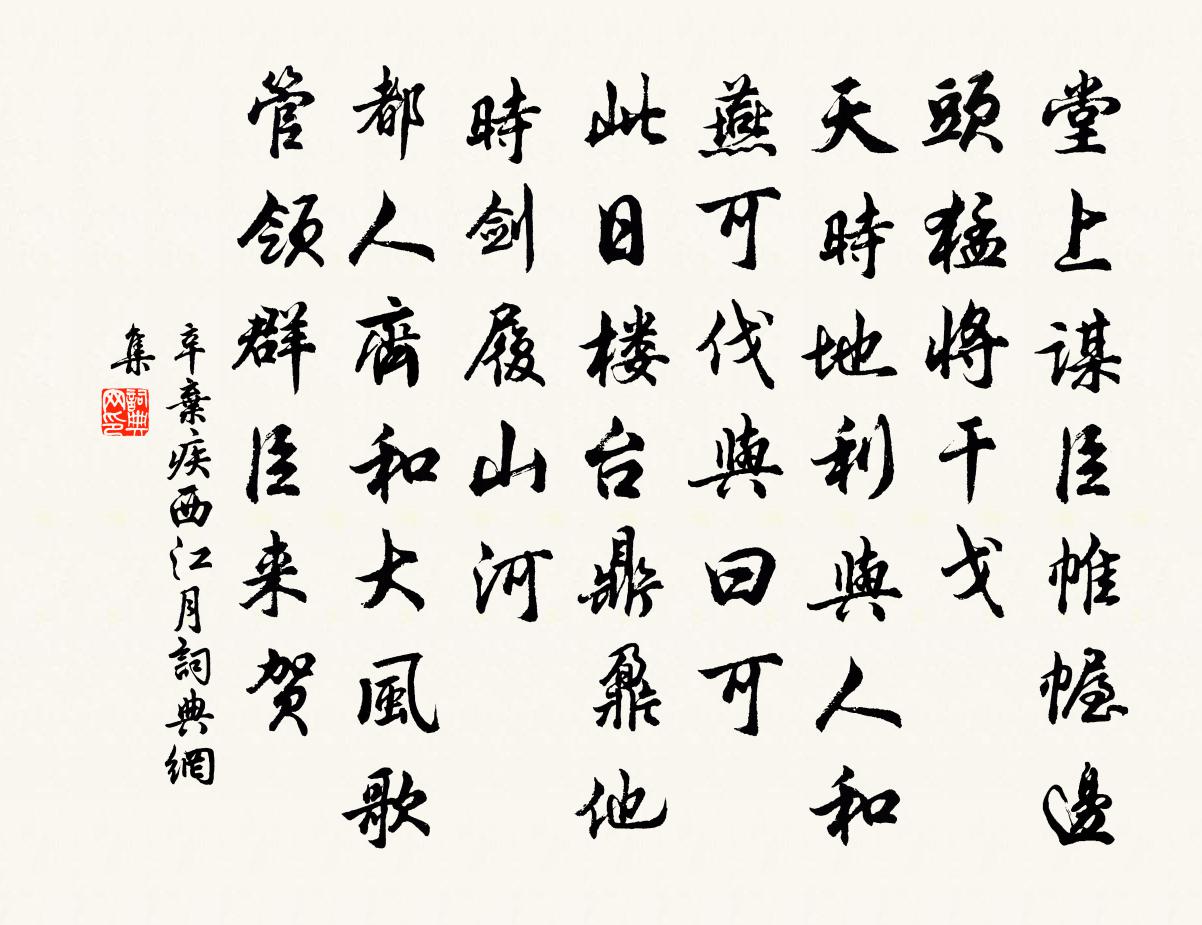 堂上謀臣帷幄邊
頭猛將干戈
天時地利與人和
燕可伐與曰可
此日楼台鼎鼐他
時劍履山河
都人齊和大風歌
管領群臣来贺
辛棄疾西江月詞典網
集
詞典网印